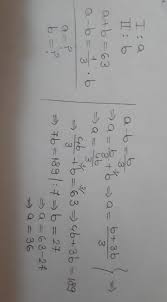 I : a
II : b
a+b=63
a-b=1/3·b
a=?
b=?
a-b=b/3
⇒ a=b/3+b ⇒ a=(b+3b)/3 } ⇒
⇒ a=4b/3
⇒ 4b/3+b=63 ⇒ 4b+3b=189
⇒ 7b=189 |:7 ⇒ b=27
⇒ a=63-27
⇒ a=36